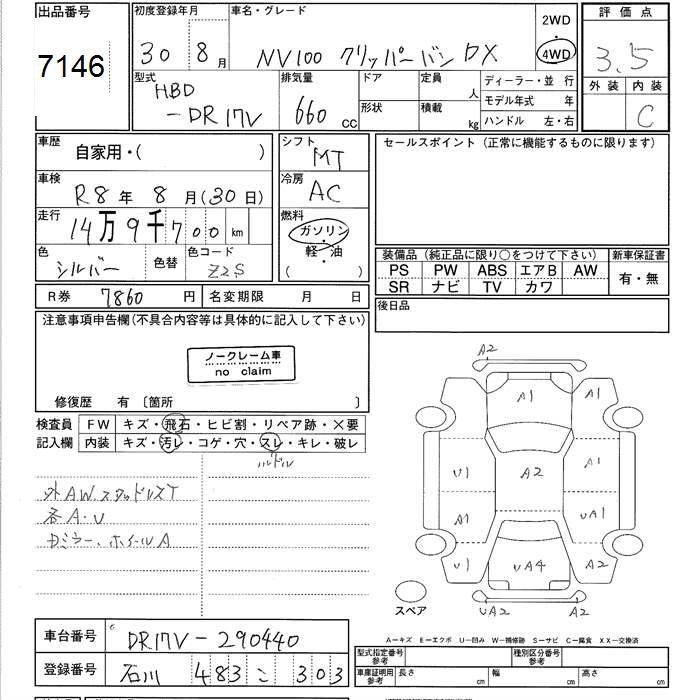 出品番号
7146
初度登録年月
30 8月
車名・グレード
NV100 クリッパーバン DX
2WD
・
4WD
評価点
3.5
外装
内装
C
型式
HBD
-DR17V
排気量
660 cc
ドア
定員 人
形状
積載 kg
ディーラー・並 行
モデル年式 年
ハンドル 左・右
車歴
自家用・( )
車検
R8年 8月(30日)
走行
14万9千700 km
色
シルバー
色替
色コード
Z2S
シフト
MT
冷房
AC
燃料
ガソリン
・
軽・油
( )
セールスポイント (正常に機能するものに限ります)
装備品 (純正品に限り○をつけて下さい)
PS PW ABS エアB AW
SR ナビ TV カワ
新車保証書
有・無
R券 7860 円
名変期限 月 日
後日品
注意事項申告欄(不具合内容等は具体的に記入して下さい)
ノークレーム車
no claim
修復歴 有 〔箇所 〕
検査員
記入欄
FW キズ・飛石・ヒビ割・リペア跡・×要
内装 キズ・汚レ・コゲ・穴・スレ・キレ・破レ
ハンドル
外AW.スタッドレスT
各A・U
ドミラー、ホイールA
A2
A1
A1
U1
A2
A1
A1
UA1
U1
UA4
A2
UA2
A2
スペア
A-キズ E-エクボ U-凹み W-補修跡 S-サビ C-腐食 XX-交換済
車台番号
DR17V-290440
登録番号
石川 483 こ 303
型式指定番号
参考
種別区分番号
参考
車庫証明用
参考
長さ cm
幅 cm
高さ cm